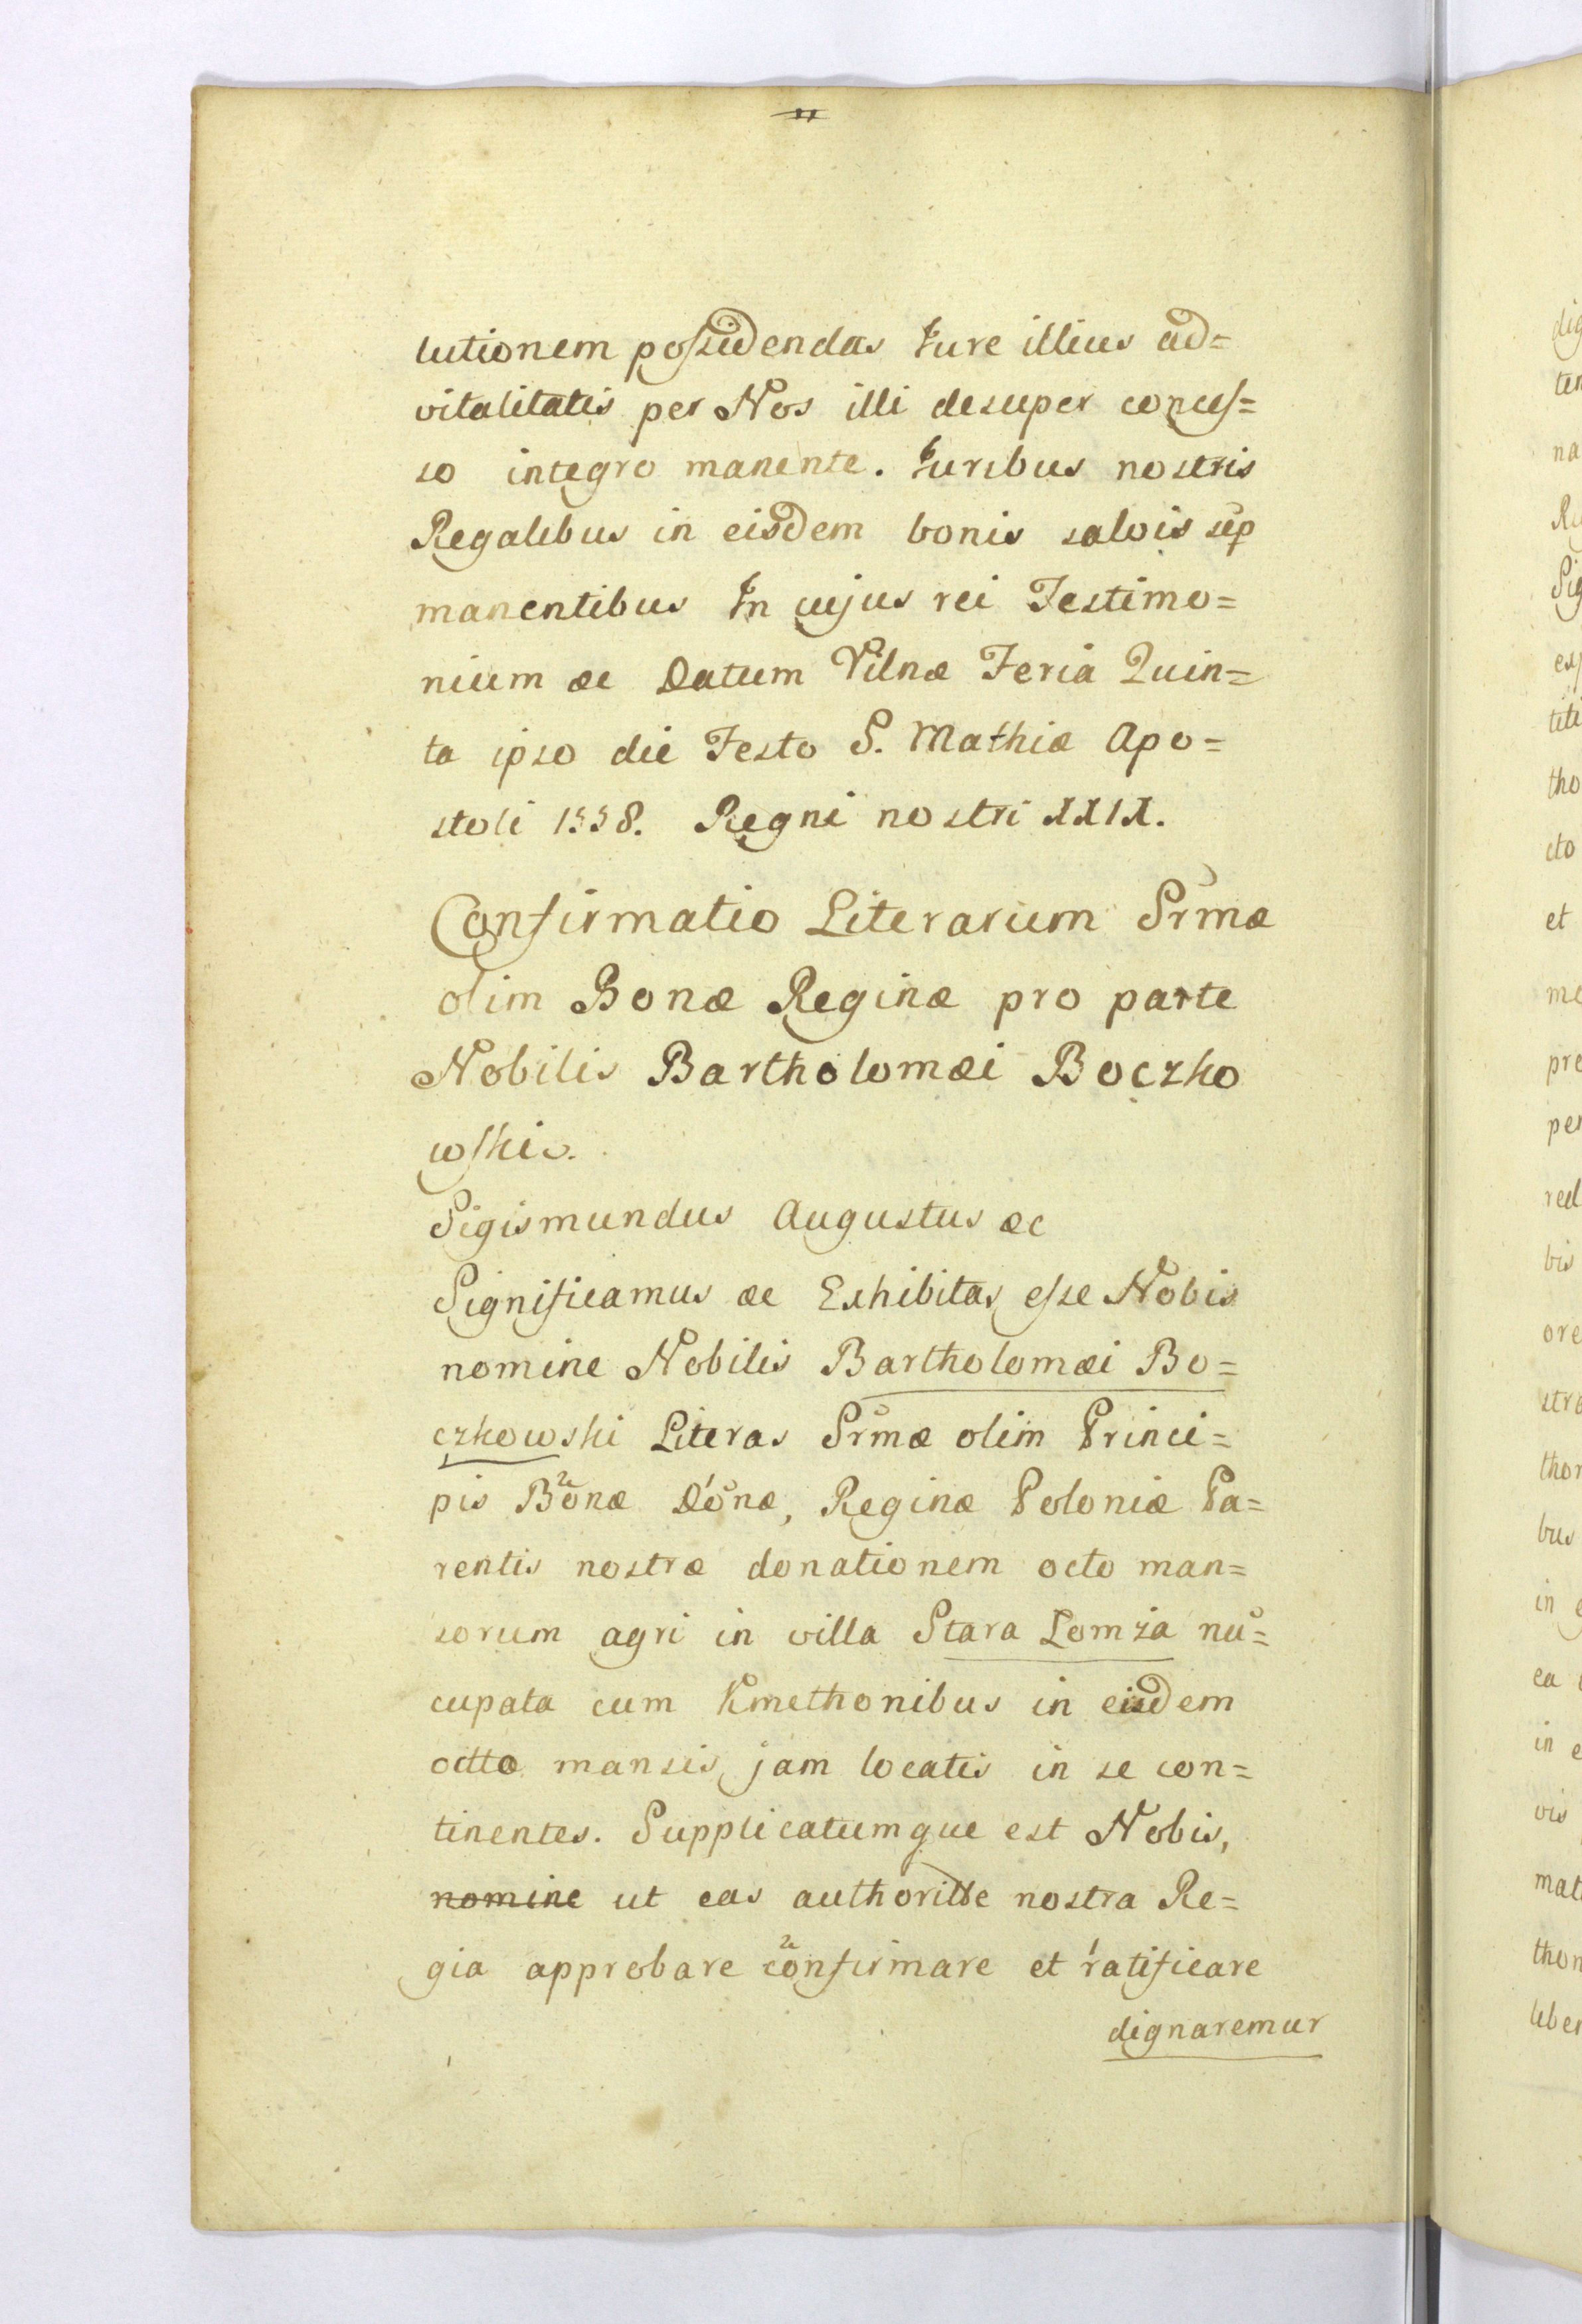 lutionem possidendas Jure illius ad=
vitalitatis per Nos illi desuper conces=
so integro manente. Juribus nostris
Regalibus in eisdem bonis salvis sēp
manentibus In cujus rei Testimo=
nium &c Datum Vilnæ Feria Quin=
ta ipso die Festo S. Mathiæ Apo=
stoli 1558. Regni nostri XXIX.
Confirmatio Literarum Srmæ
olim Bonæ Reginæ pro parte
Nobilis Bartholomæi Boczko
wskis.
Sigismundus Augustus &c
Significamus &c Exhibitas esse Nobis
nomine Nobilis Bartholomæi Bo=
czkowski Literas Srmæ olim Princi=
pis Bonæ Dönæ, Reginæ Poloniæ Pa=
rentis nostræ donationem octo man=
sorum agri in villa Stara Łomża nu̅=
cupata cum Kmethonibus in eisdem
octto mansis jam locatis in se con=
tinentes. Supplicatumque est Nobis,
nomine ut eas authoritte nostra Re=
gia approbare confirmare et ratificare
dignaremur